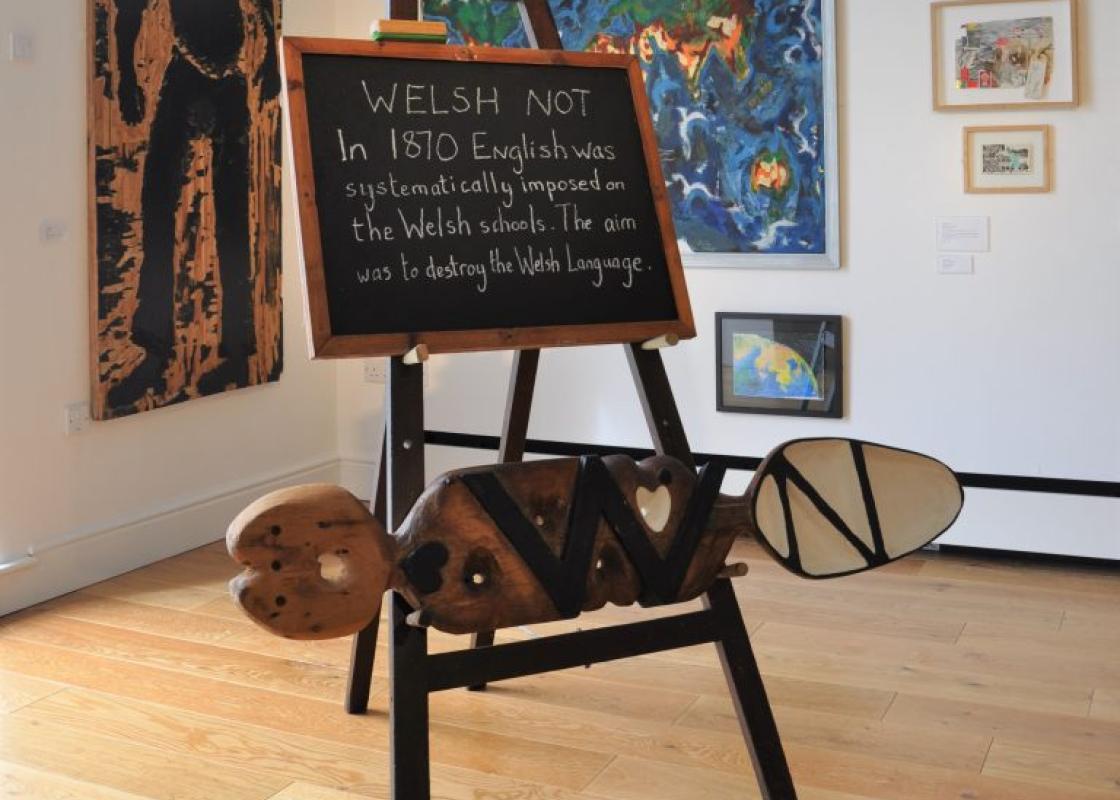 WELSH NOT
In 1870 English was
systematically imposed on
the Welsh schools. The aim
was to destroy the Welsh Language.
W N